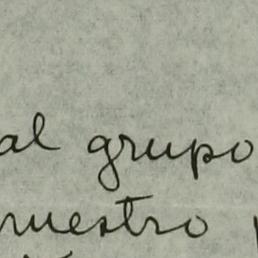 al grupo
nuestro